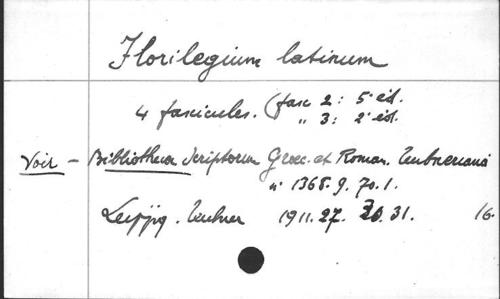 Florilegium latinum
4 fascicules. (fasc 2: 5e éd.
" 3: 2e éd.
Voir - Bibliotheca Scriptorum Graec. et Roman. Teubneriana
n° 1368. 9. 70. 1.
Leipzig. Teubner 1911. 27. 20. 31. 16.